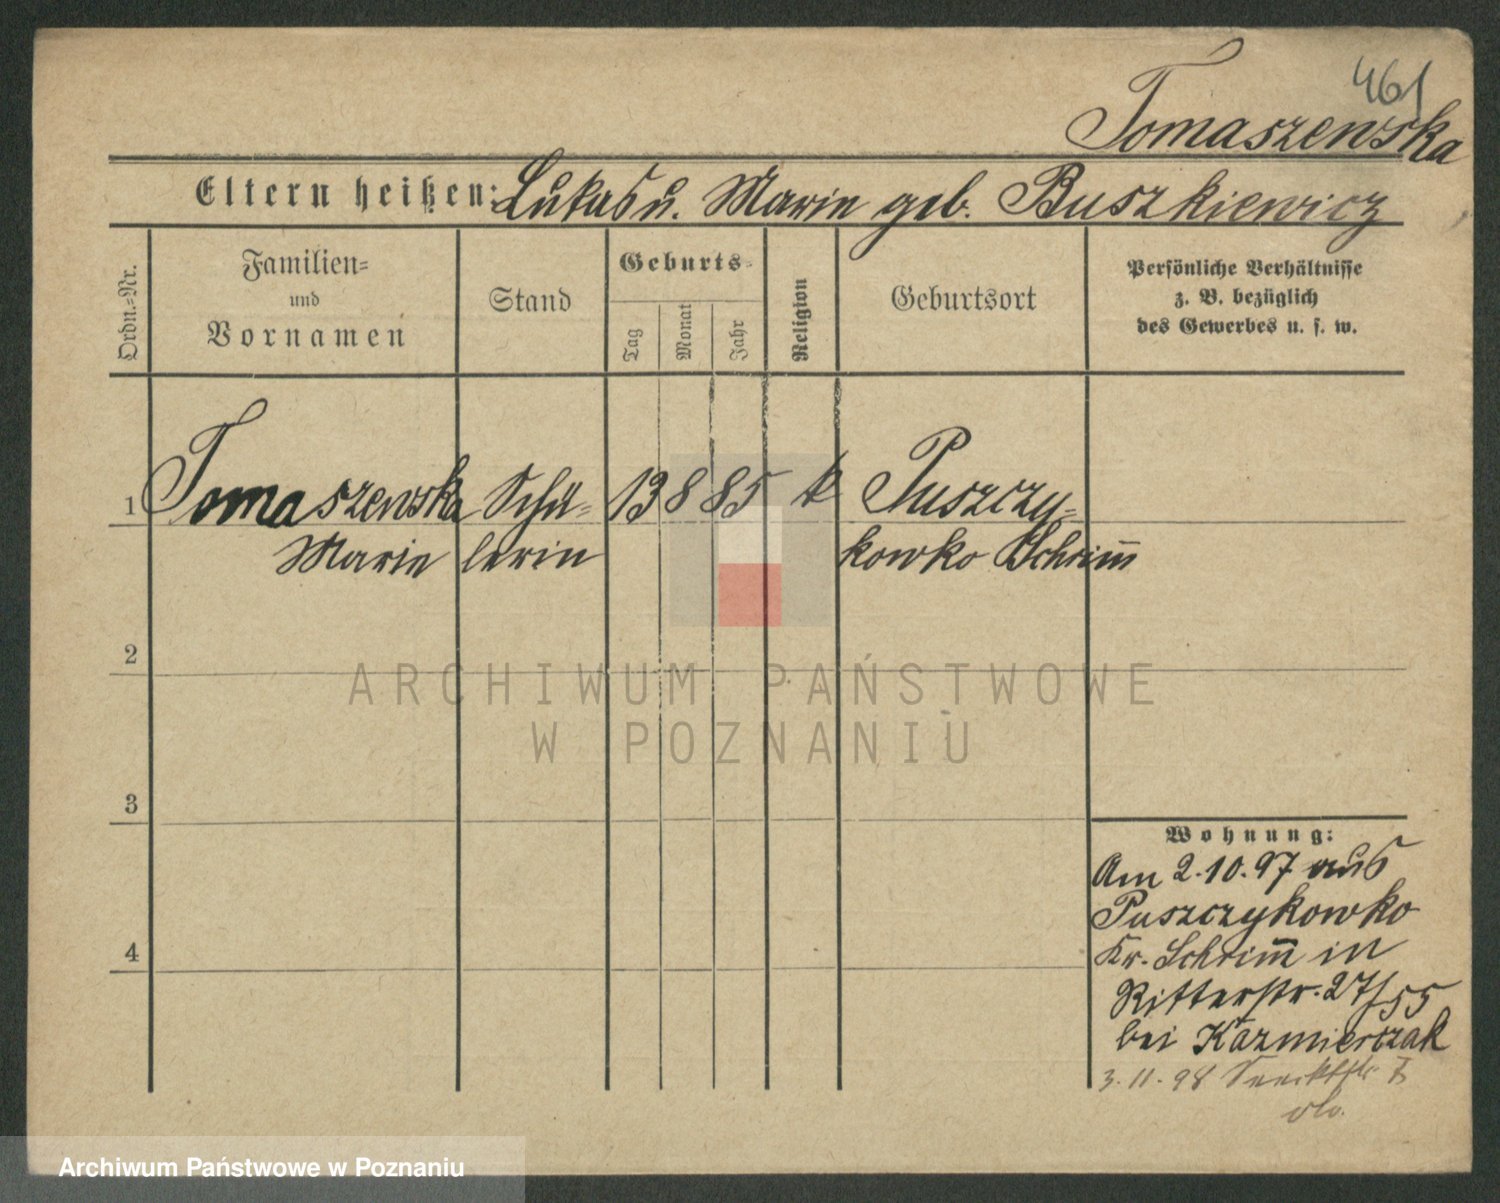 461
Tomaszewska
Eltern heißen: Lukas u. Marie geb. Buszkiewicz
Ordn.=Nr.
Familien=
und
Vornamen
Stand
Geburts=
Tag
Monat
Jahr
Religion
Geburtsort
Persönliche Verhältnisse
z. B. bezüglich
des Gewerbes u. s. w.
1 Tomaszewska Schü= 13 8 85 k Puszczy=
Marie lerin kowko Schrim̅
2
3
4
ARCHIWUM PAŃSTWOWE
W POZNANIU
Wohnung:
Am 2.10.97 aus
Puszczykowko
Kr. Schrim̅ in
Ritterstr. 27/55
bei Kazmierczak
3.11.98
Archiwum Państwowe w Poznaniu